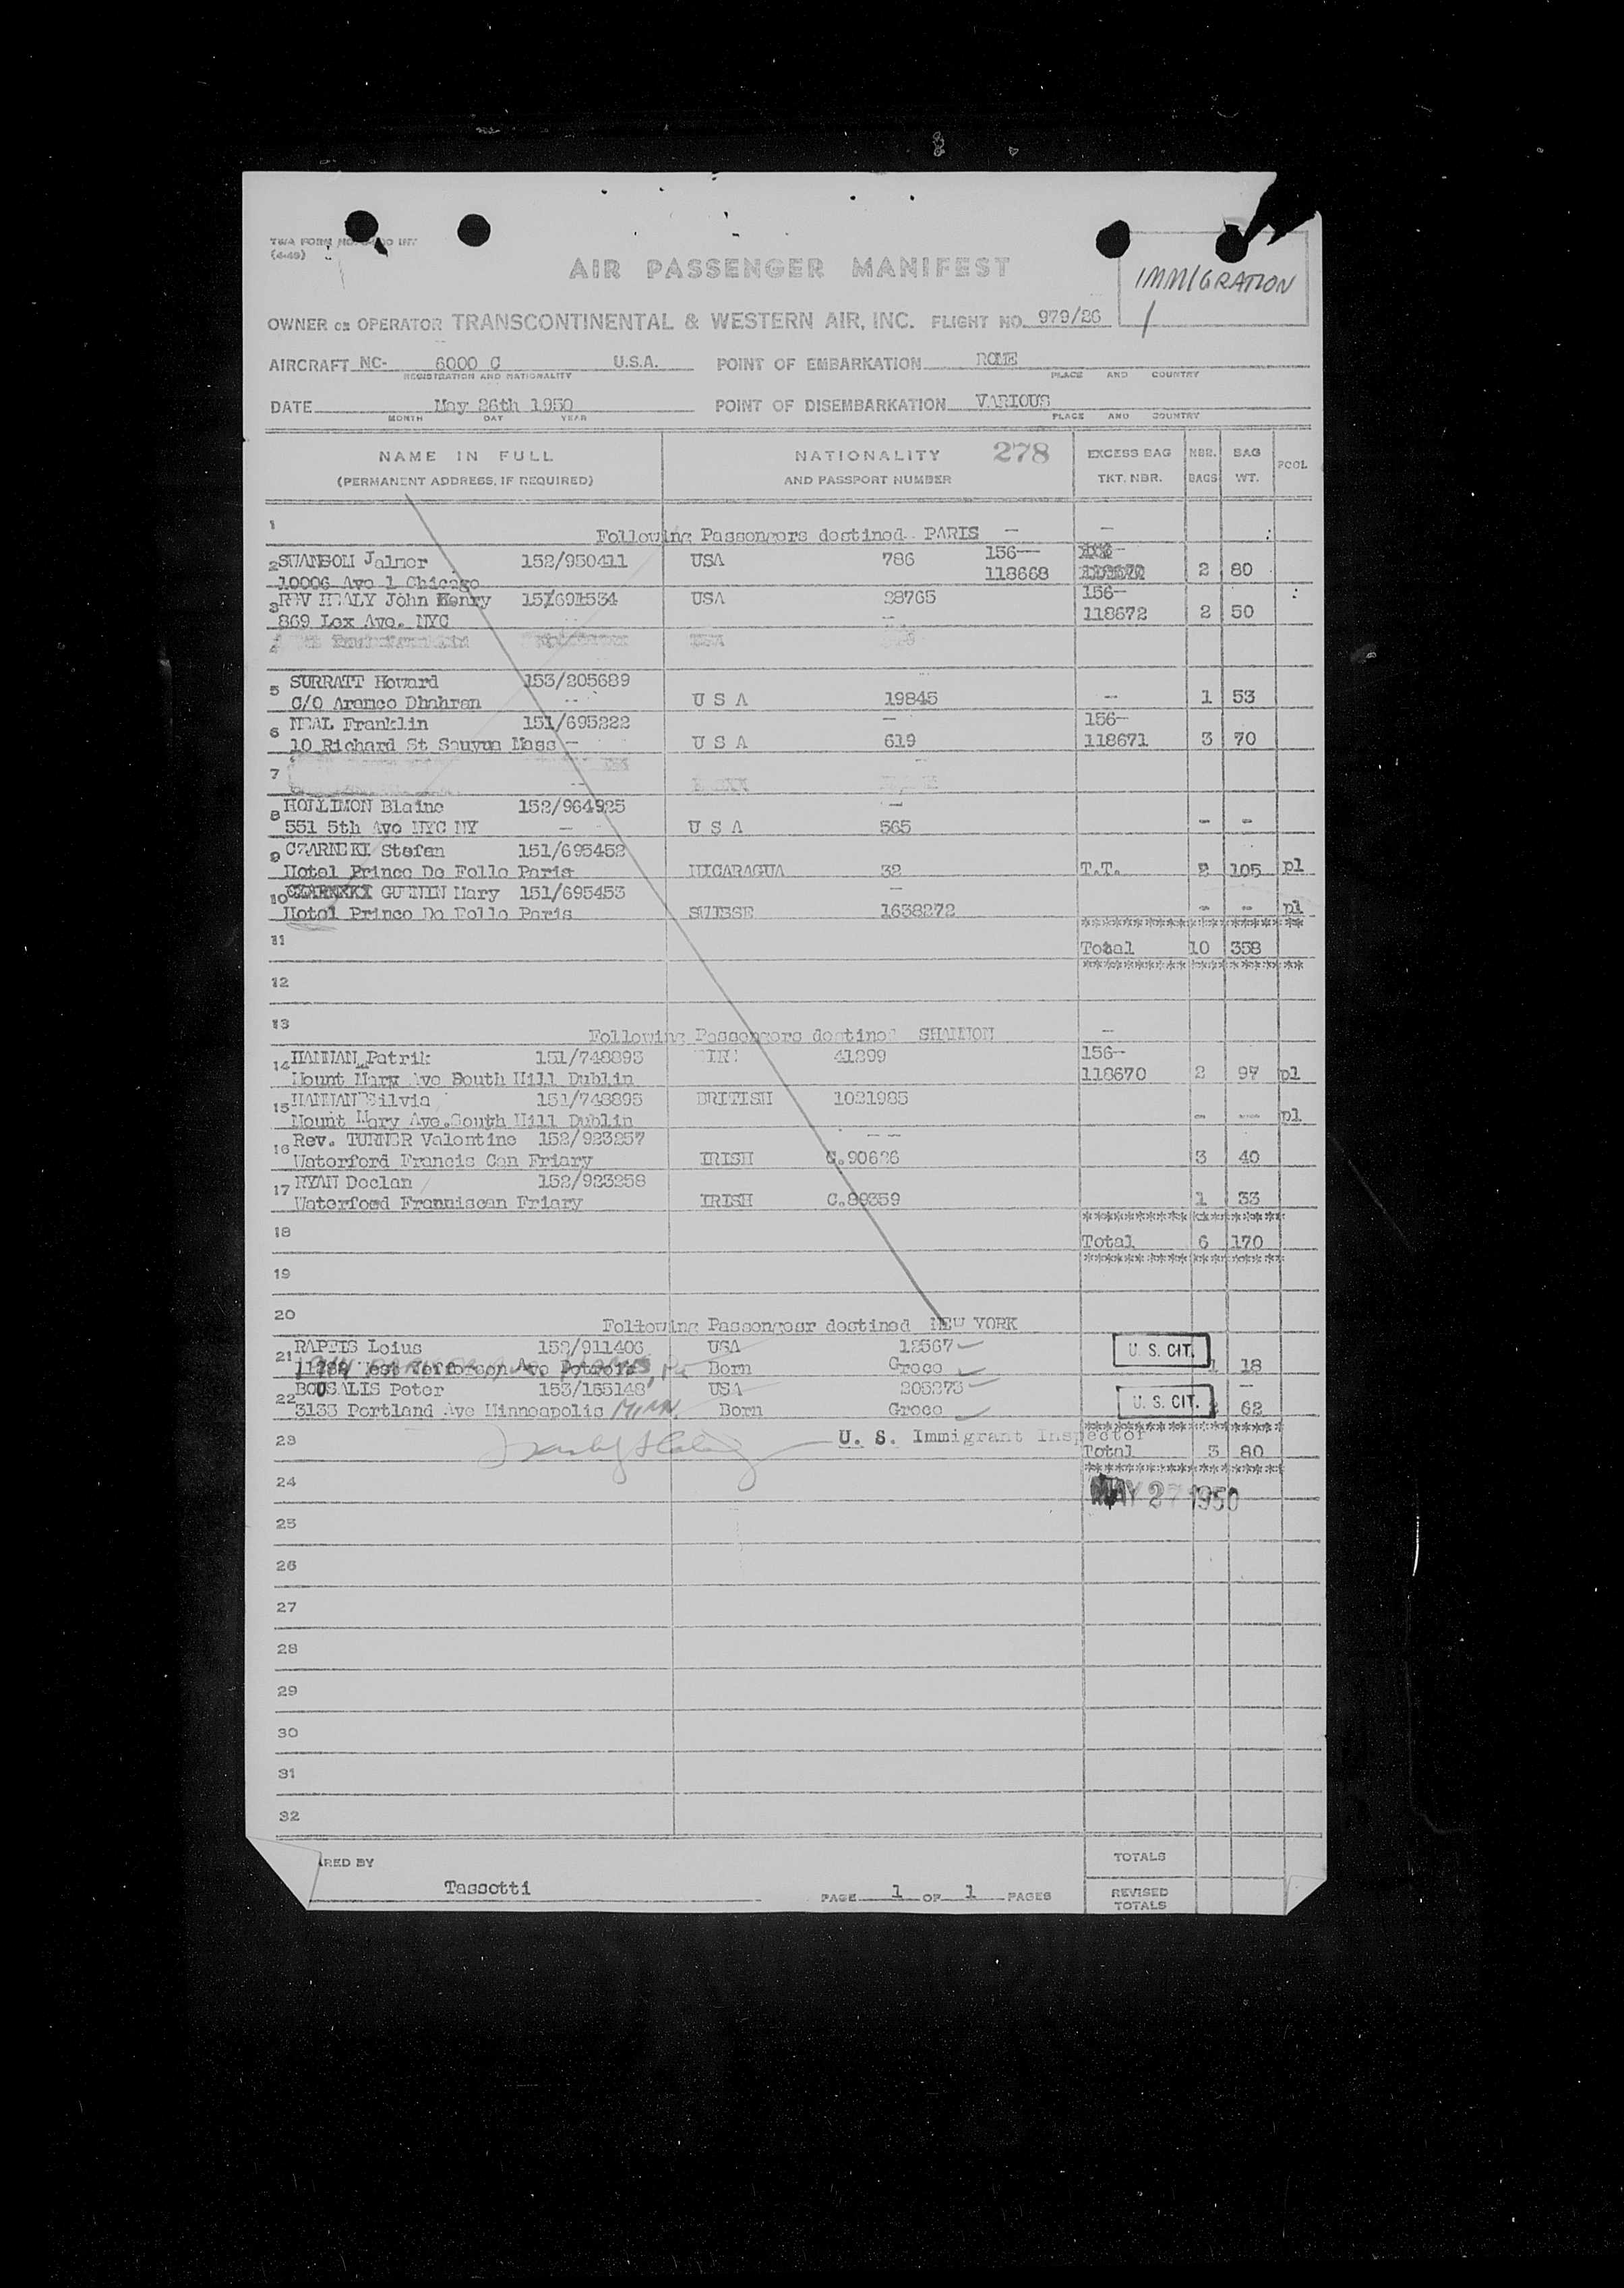 TWA FORM NO. INT
(4-49)
AIR PASSENGER MANIFEST
IMMIGRATION
1
OWNER OR OPERATOR TRANSCONTINENTAL & WESTERN AIR, INC. FLIGHT NO. 979/26
AIRCRAFT NC- 6000 C U.S.A. POINT OF EMBARKATION ROME
REGISTRATION AND NATIONALITY PLACE AND COUNTRY
DATE May 26th 1950 POINT OF DISEMBARKATION VARIOUS
MONTH DAY YEAR PLACE AND COUNTRY
NAME IN FULL NATIONALITY 278 EXCESS BAG NBR. BAG POOL
(PERMANENT ADDRESS, IF REQUIRED) AND PASSPORT NUMBER TKT. NBR. BAGS WT.
1 Following Passengers destined PARIS — —
2 SWANSON Jalmer 152/950411 USA 786 156—
10006 Ave l Chicago 118668 2 80
3 REV HEALY John Henry 151/691534 USA 28765 156—
869 Lex Ave. NYC 118672 2 50
4
5 SURRATT Howard 153/205689
C/O Aramco Dhahran U S A 19845 -- 1 53
6 NEAL Franklin 151/695222 156—
10 Richard St Mass — U S A 619 118671 3 70
7
8 HOLLIMON Blaine 152/964925
551 5th Ave NYC NY — U S A 565 - -
9 Stefan 151/695452
Hotel Prince De Folle Paris NICARAGUA 32 T.T. 2 105 pl
10 Mary 151/695453
Hotel Prince De Folle Paris SUISSE 1638272 - - pl
*********************
11 Total 10 358
*********************
12
13 Following Passengers destined SHANNON —
14 HANNAN Patrik 151/748893 41299 156—
Mount Mary Ave South Hill Dublin 118670 2 97 pl
15 HANNAN Silvia 151/748895 BRITISH 1021985
Mount Mary Ave.South Hill Dublin - -- pl
16 Rev. TURNER Valentine 152/923257
Waterford Francis Can Friary IRISH C.90626 3 40
17 RYAN Declan 152/923258
Waterfoed Franniscan Friary IRISH C.89359 1 33
*******************
18 Total 6 170
*******************
19
20 Following Passengesr destined NEW YORK
21 RAPTIS Loius 152/911406 USA 12567 U. S. CIT.
West Jefferson Ave Born Grece 1 18
22 BOUSALIS Peter 153/165148 USA 205273 U. S. CIT.
3133 Portland Ave Minneapolis MINN. Born Grece 62
*******************
23 U. S. Immigrant Inspector
Total 3 80
*******************
24 MAY 27 1950
25
26
27
28
29
30
31
32
ARED BY TOTALS
Tassotti PAGE 1 OF 1 PAGES REVISED
TOTALS